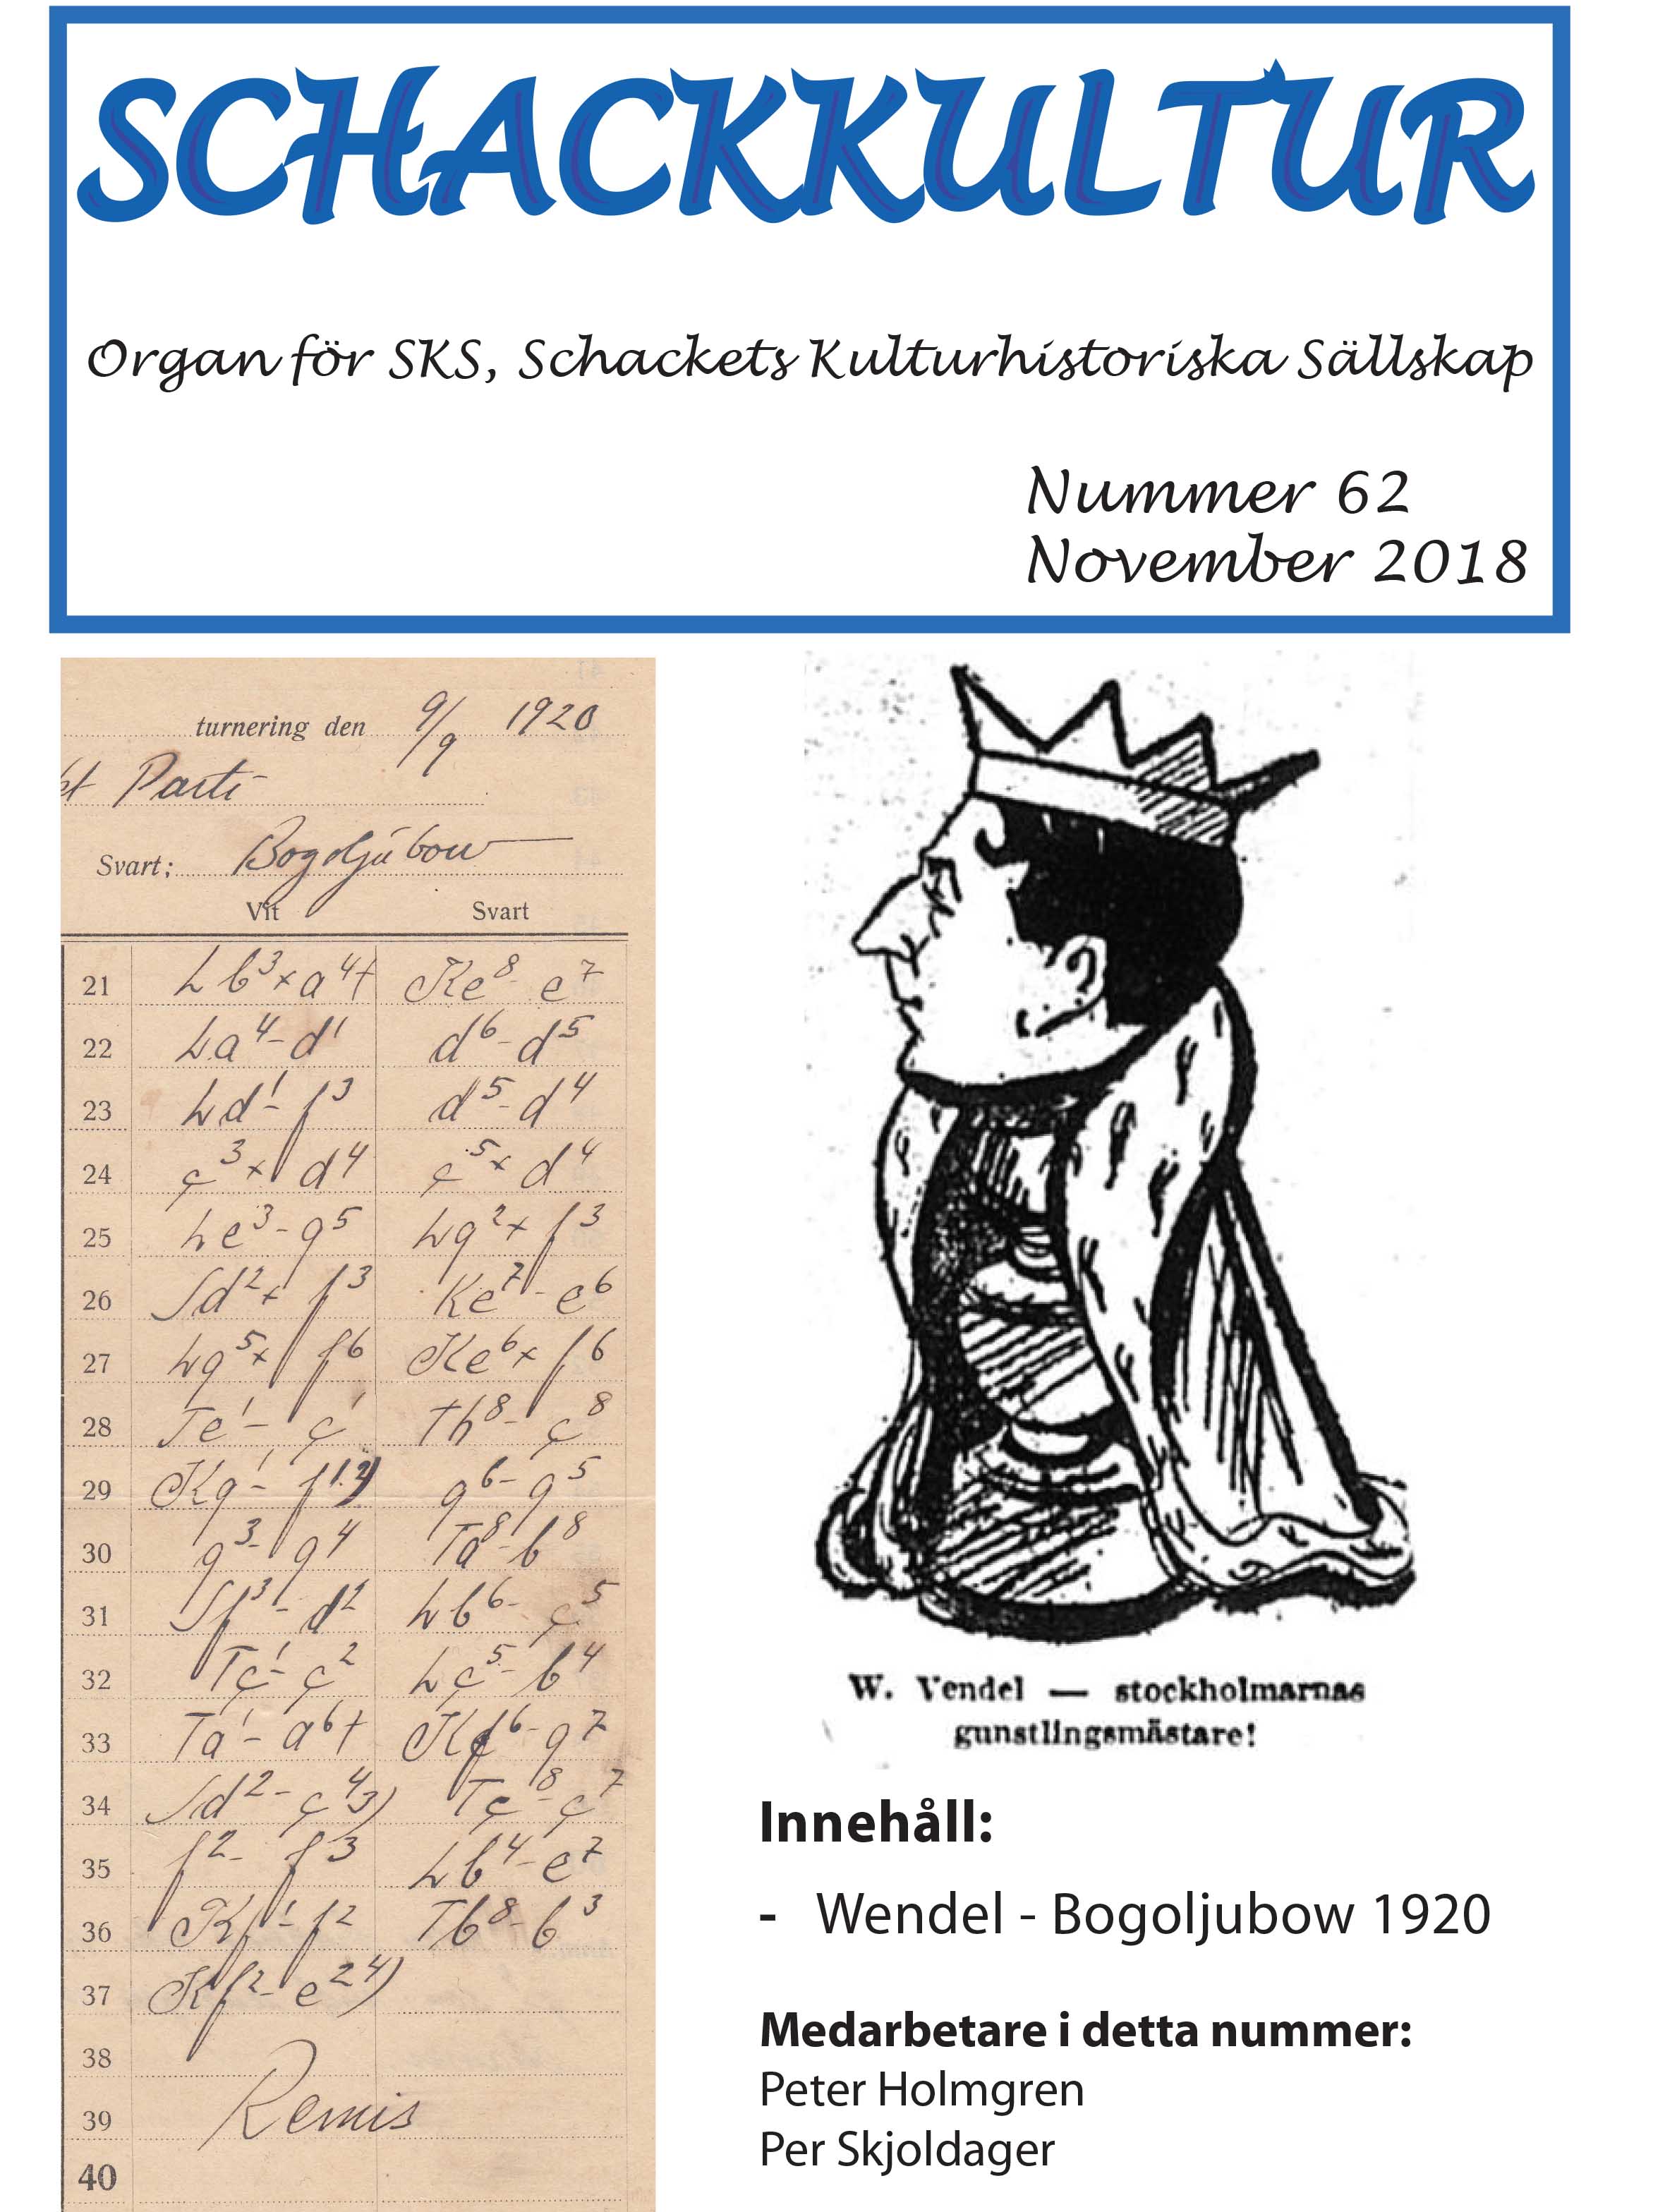 SCHACKKULTUR
Organ för SKS, Schackets Kulturhistoriska Sällskap
Nummer 62
November 2018
turnering den 9/9 1920
Parti
Svart; Bogoljubow
Vit Svart
21 Lb3×a4† Ke8-e7
22 La4-d1 d6-d5
23 Ld1-f3 d5-d4
24 c3×d4 c5×d4
25 Le3-g5 Lg2×f3
26 Sd2×f3 Ke7-e6
27 Lg5×f6 Ke6×f6
28 Te1-c1 Th8-c8
29 Kg1-f1 2) g6-g5
30 g3-g4 Ta8-b8
31 Sf3-d2 Lb6-c5
32 Tc1-c2 Lc5-b4
33 Ta1-a6† Kf6-g7
34 Sd2-c4 3) Tc8-c7
35 f2-f3 Lb4-e7
36 Kf1-f2 Tb8-b3
37 Kf2-e2 4)
38
39 Remis
40
W. Vendel — stockholmarnas
gunstlingsmästare!
Innehåll:
- Wendel - Bogoljubow 1920
Medarbetare i detta nummer:
Peter Holmgren
Per Skjoldager